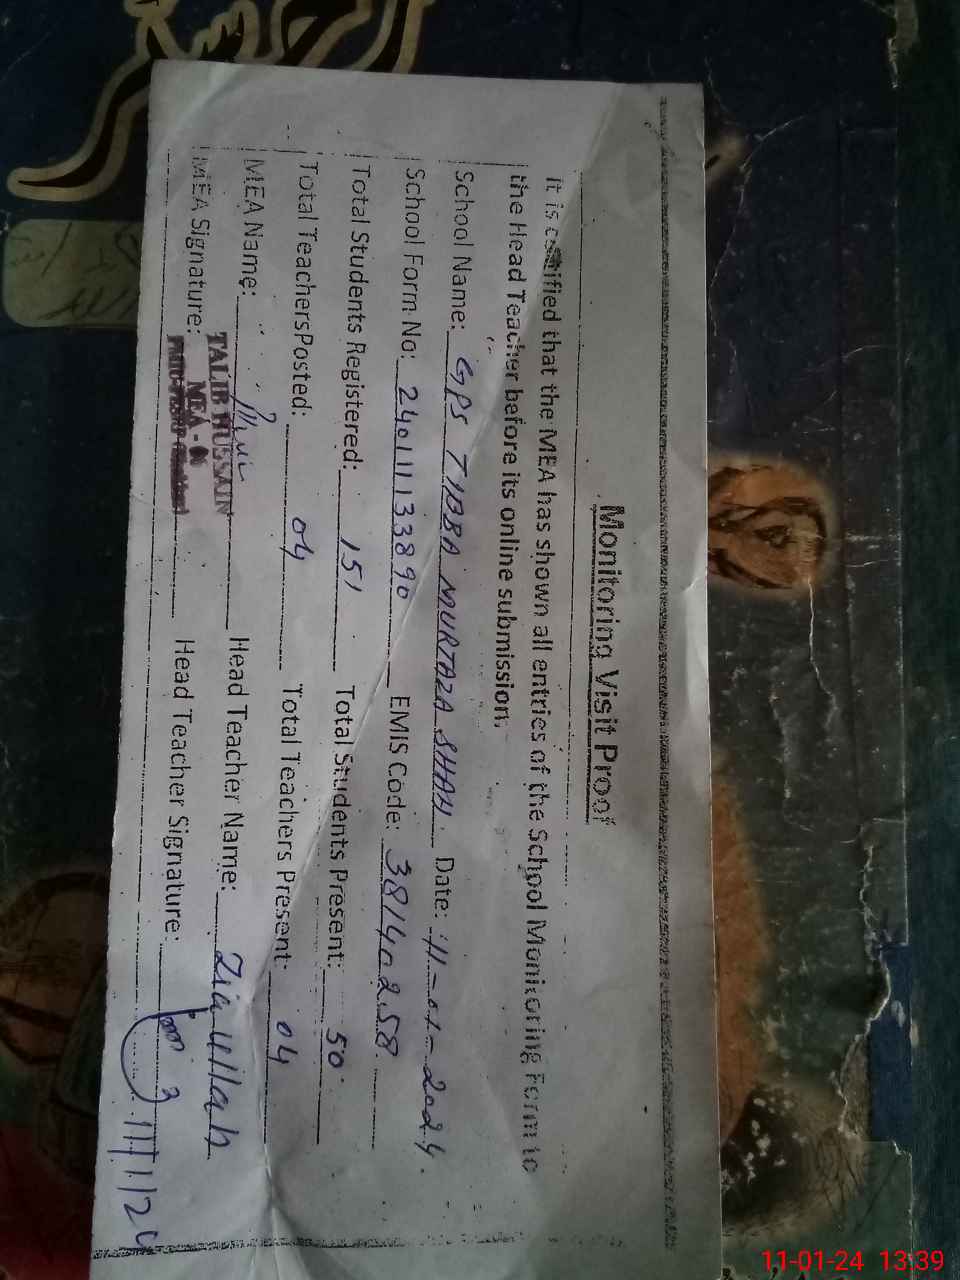 Monitoring Visit Proof
It is certified that the MEA has shown all entries of the School Monitoring Form to
the Head Teacher before its online submission.
School Name: GPS TIBBA MURTAZA SHAH. Date: 11-01-2024.
School Form No: 240111133890 EMIS Code: 38140258
Total Students Registered: 151 Total Students Present: 50
Total TeachersPosted: 04 Total Teachers Present: 04
MEA Name: Head Teacher Name: Zia Ullah
TALIB HUSSAIN
MEA Signature: Head Teacher Signature:
MEA -
11/1/20
11-01-24 13:39